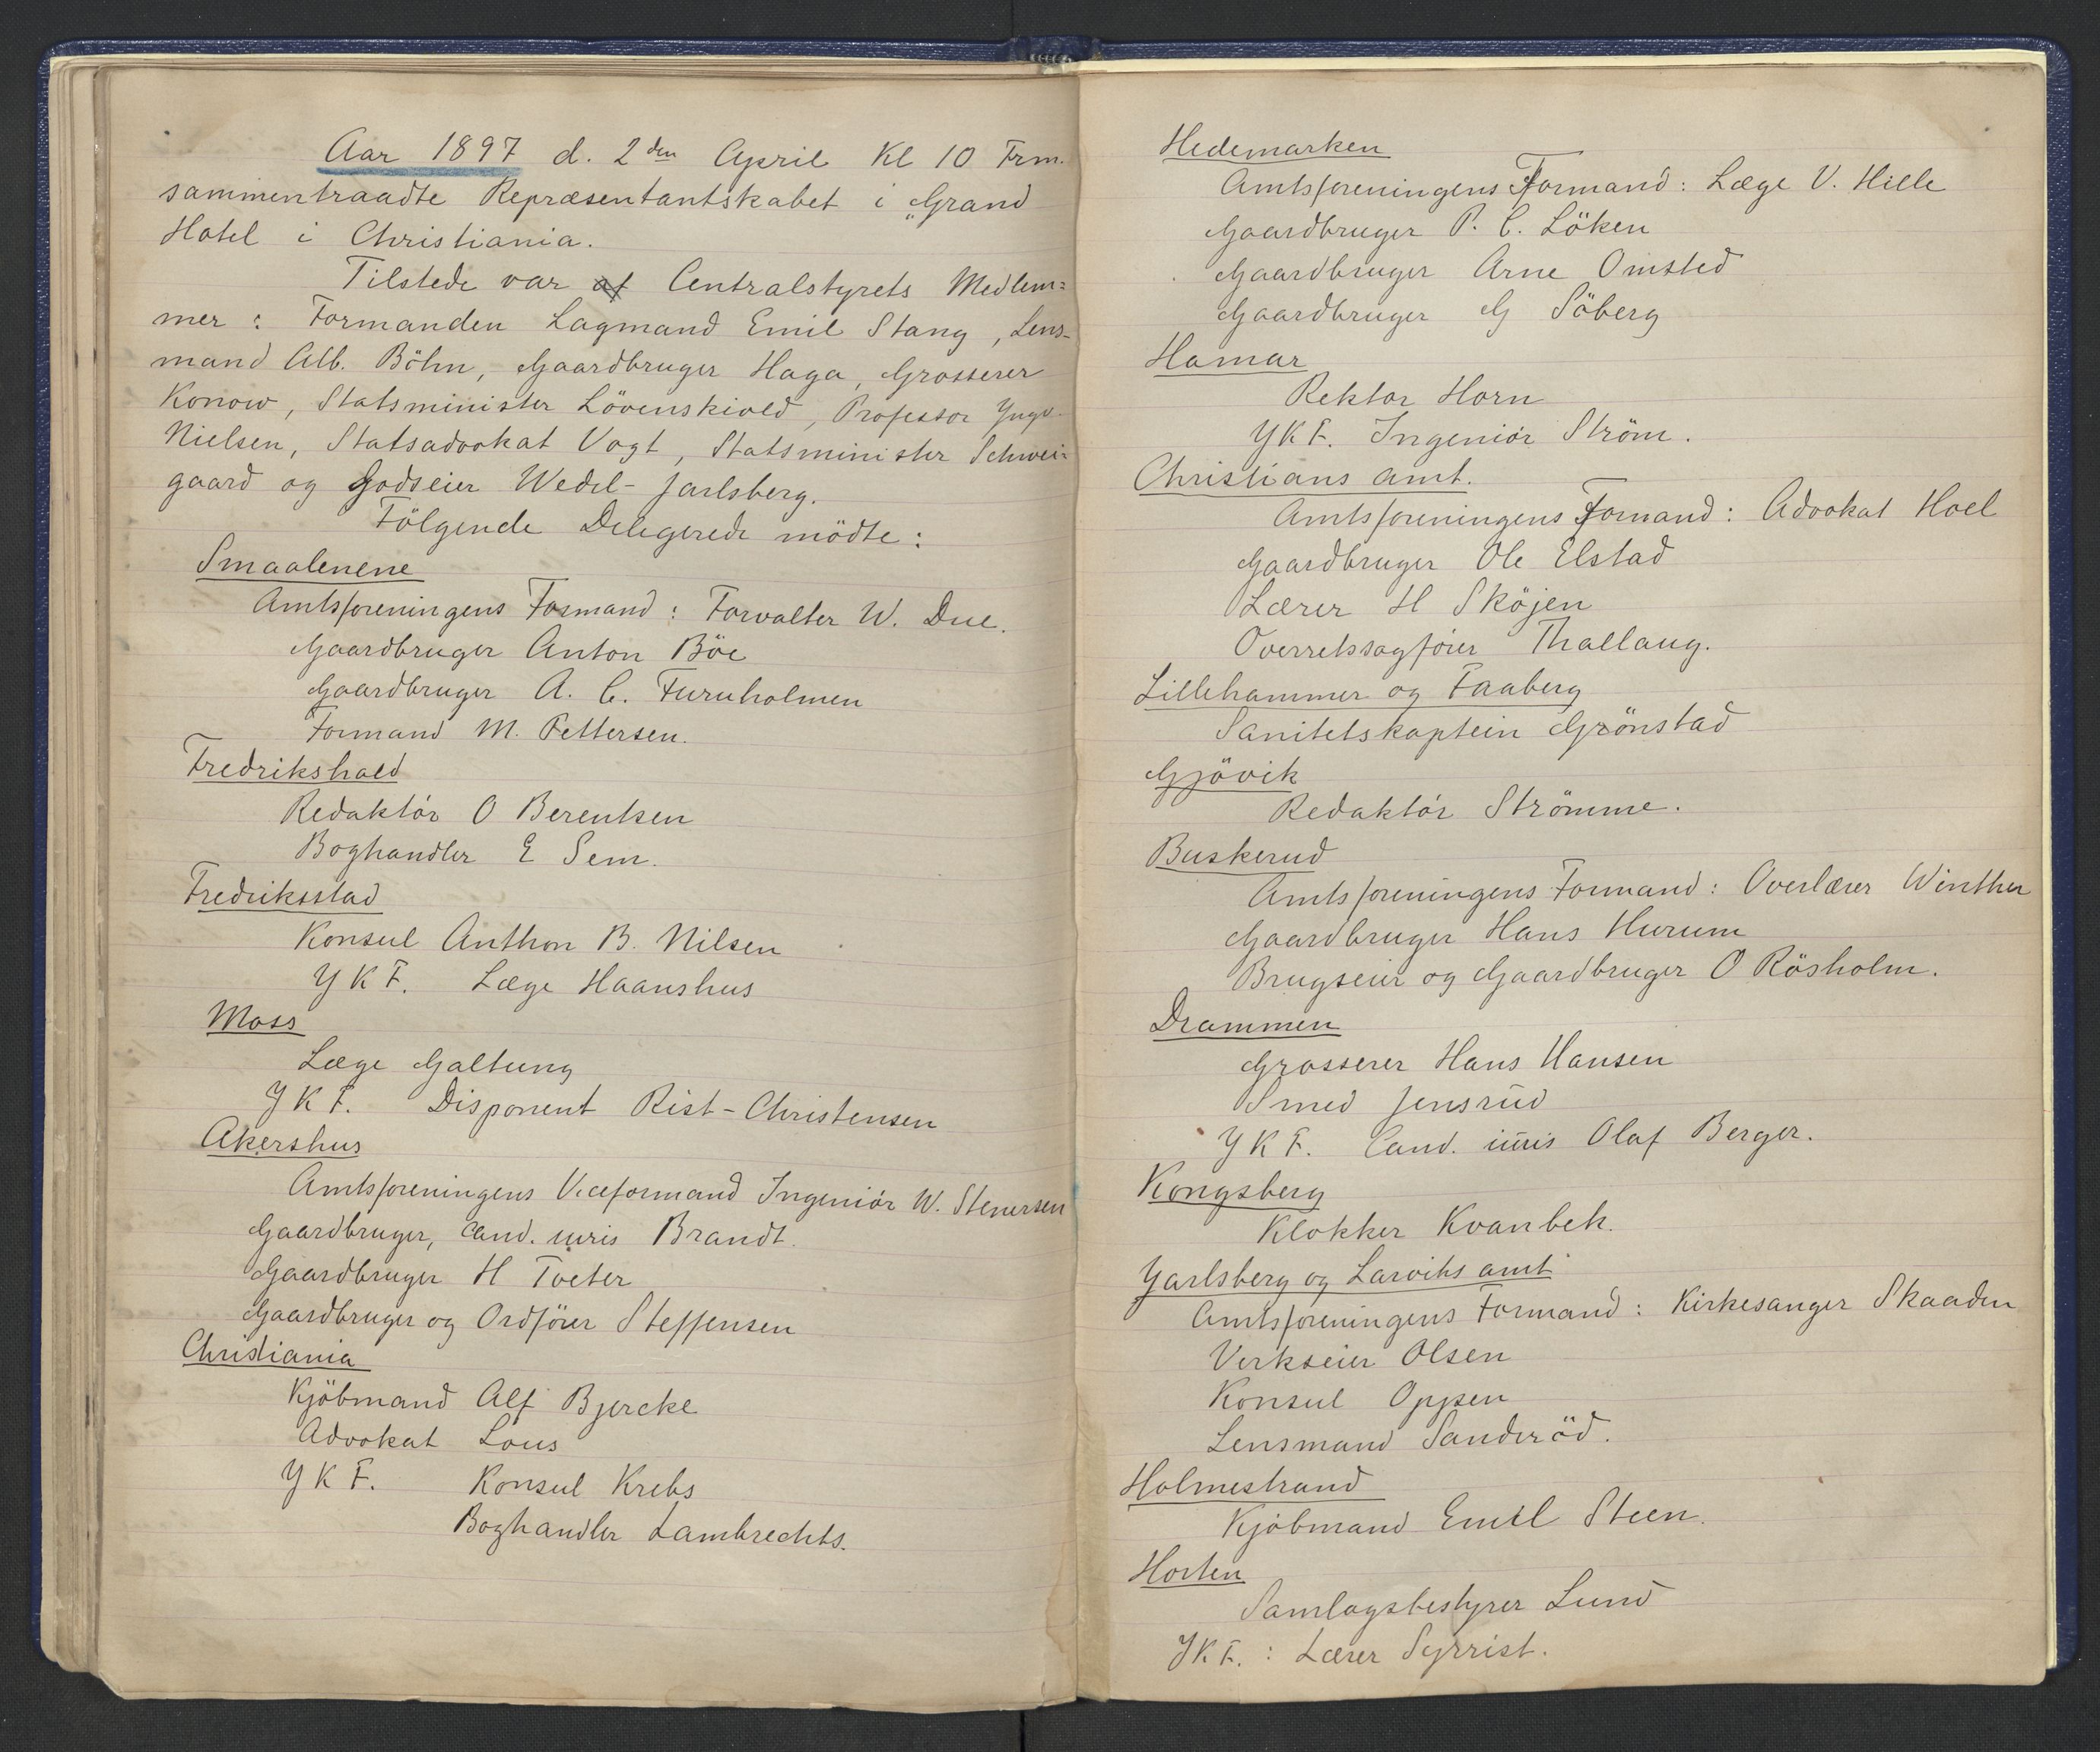 Aar 1897 d. 2den April Kl 10 Frm.
sammentraadte Repræsentantskabet i „Grand
Hotel i Christiania.
Tilstede var af Centralstyrets Medlem=
mer: Formanden Lagmand Emil Stang, Lens-
mand Alb. Böhn, Gaardbruger Haga, Grosserer
Konow, Statsminister Lövenskiold, Professor Yngv.
Nielsen, Statsadvokat Vogt, Statsminister Schwei=
gaard og Godseier Wedel-Jarlsberg.
Fölgende Delegerede mödte:
Smaalenene
Amtsforeningens Formand: Forvalter W. Due.
Gaardbruger Anton Böe
Gaardbruger A. C. Furuholmen
Formand M. Pettersen.
Fredrikshald
Redaktör O Berentsen
Boghandler E Sem.
Fredriksstad
Konsul Anthon B. Nilsen
Y K F. Læge Haanshus
Moss
Læge Galtung
Y K F. Disponent Rist-Christensen
Akershus
Amtsforeningens Viceformand Ingeniör W. Stenersen
Gaardbruger, Cand. juris Brandt.
Gaardbruger H Tveter
Gaardbruger og Ordförer Steffensen
Christiania
Kjöbmand Alf Bjercke
Advokat Lous
Y K F. Konsul Krebs
Boghandler Lambrechts.
Hedemarken
Amtsforeningens Formand: Læge V. Hille
Gaardbruger P. C. Löken
Gaardbruger Arne Omsted
Gaardbruger G Söberg
Hamar
Rektor Horn
Y K F. Ingeniör Ström.
Christians amt.
Amtsforeningens Formand: Advokat Hoel
Gaardbruger Ole Elstad
Lærer H Sköjen
Overretssagförer Thallaug.
Lillehammer og Faaberg
Sanitetskaptein Grönstad
Gjövik
Redaktör Strömme.
Buskerud
Amtsforeningens Formand: Overlærer Winther
Gaardbruger Hans Hurum
Brugseier og Gaardbruger O Rösholm.
Drammen
Grosserer Hans Hansen
Smed Jensrud
Y K F. Cand. juris Olaf Berger.
Kongsberg
Klokker Kvanbek.
Jarlsberg og Larviks amt
Amtsforeningens Formand: Kirkesanger Skaaden
Verkseier Olsen
Konsul Oppen
Lensmand Sanderöd.
Holmestrand
Kjöbmand Emil Steen.
Horten
Samlagsbestyrer Lund
Y K F.: Lærer Syrrist.